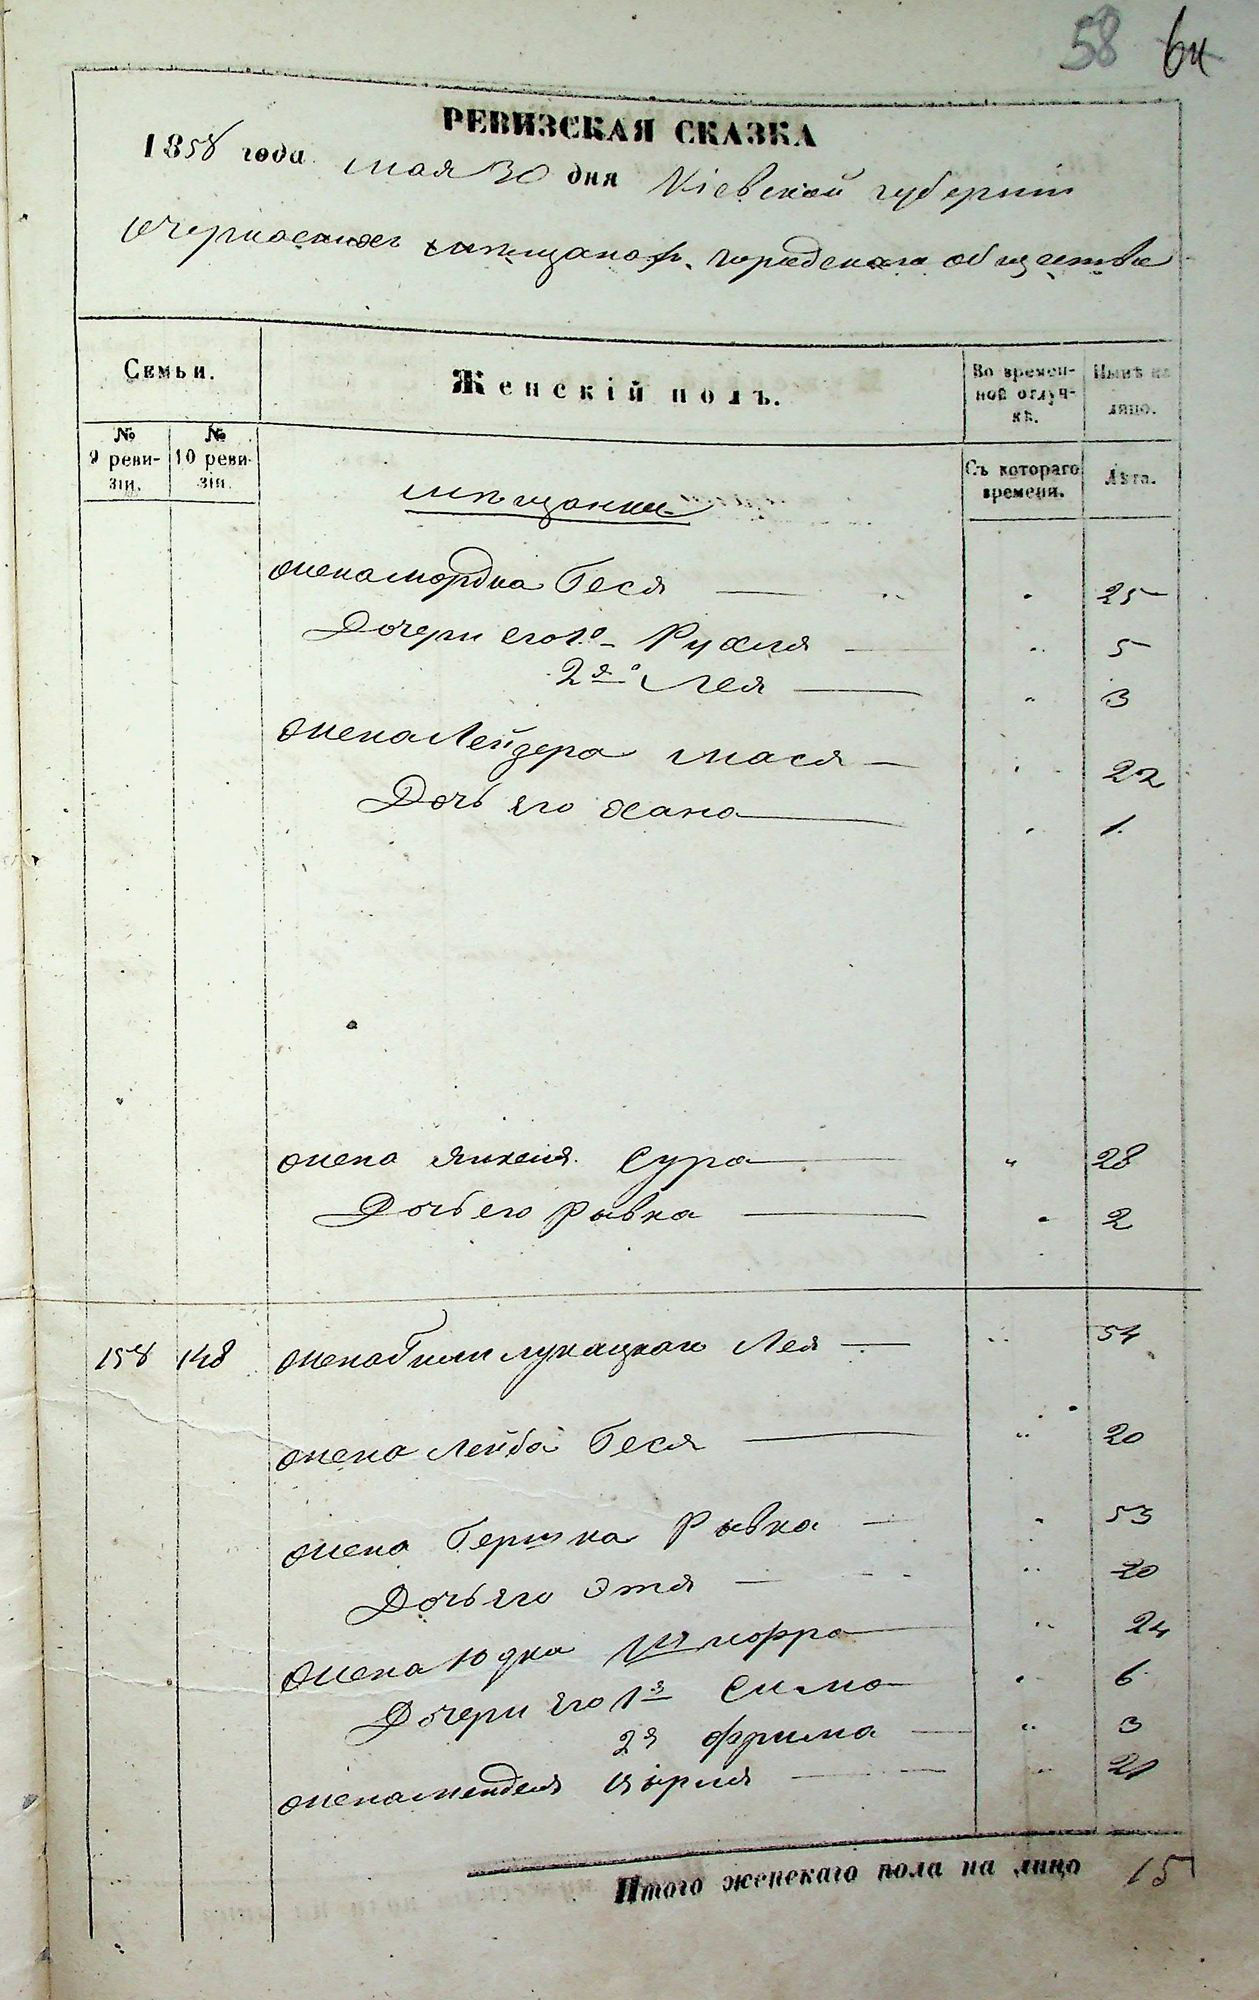 58 64
РЕВИЗСКАЯ СКАЗКА
1858 года мая 30 дня Кіевской губерніи
Черкаскаго мѣщанск. городскаго общества
Семьи.
Женскій полъ.
Во времен-
ной отлуч-
кѣ.
Нынѣ на
лицо.
№
9 реви-
зіи.
№
10 реви-
зіи.
Съ котораго
времени.
Лѣта.
мѣщанки
жена Мордка Беся — " 25
Дочери его 1я Рухля — " 5
2я Лея — " 3
жена Лейзера Мася — " 22
Дочь его Хана — " 1
жена Янкеля Сура — " 28
Дочь его Рывка — " 2
158 148 жена Лукацкаго Лея — " 54
жена Лейбы Беся — " 20
жена Гершка Рывка — " 53
Дочь его Этя — " 20
жена Юдка Шпфра — " 24
Дочери его 1я Сима " 6
2я Фрима — " 3
жена Менделя Цырля — " 21
Итого женскаго пола на лицо 15